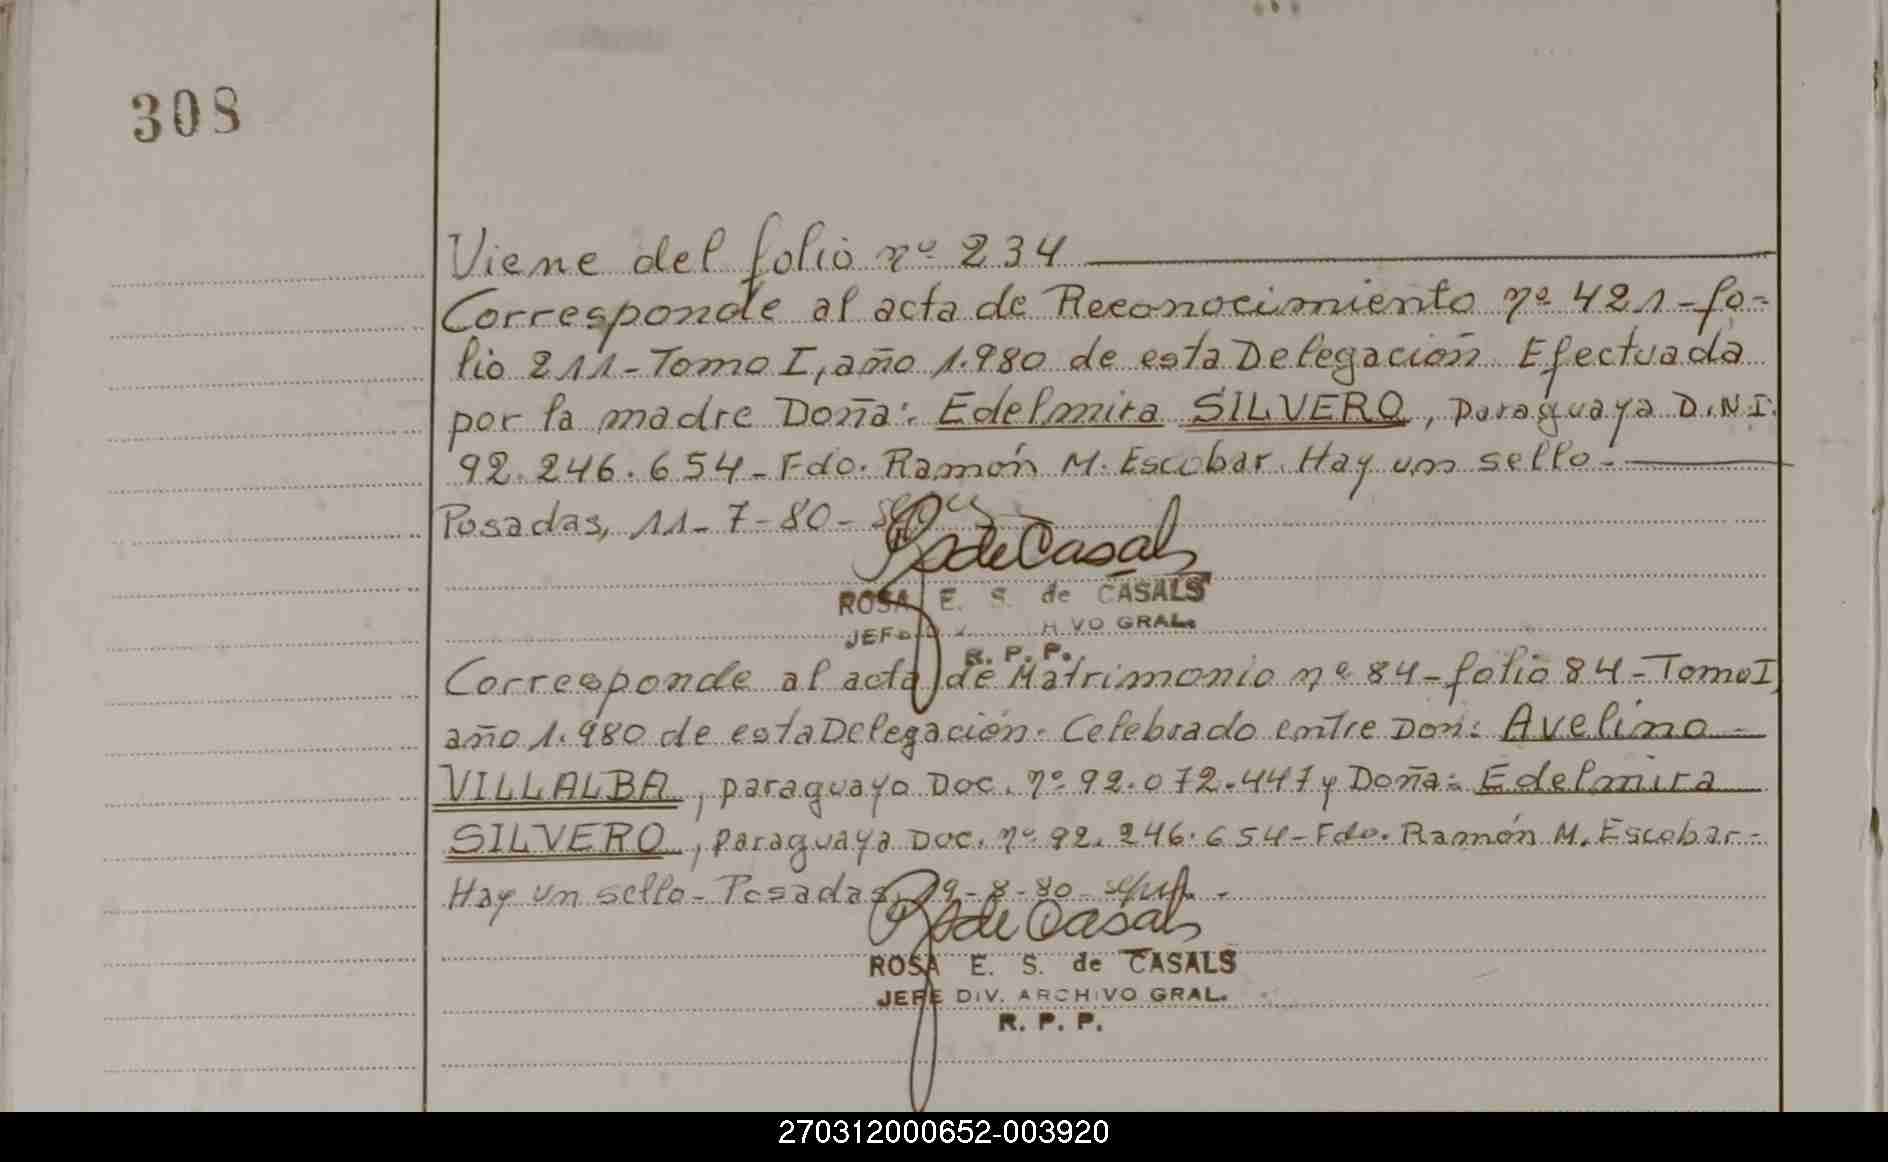 308
Viene del folio nº 234
Corresponde al acta de Reconocimiento nº 421 - fo-
lio 211 - Tomo I, año 1.980 de esta Delegación Efectuada
por la madre Doña: Edelmira SILVERO, paraguaya D.N.I.
92.246.654 - Fdo. Ramón M. Escobar. Hay un sello.
Posadas, 11-7-80-
R de Casals
ROSA E. S. de CASALS
JEFE VO GRAL.
R. P. P.
Corresponde al acta de Matrimonio nº 84 - folio 84 - Tomo I,
año 1.980 de esta Delegación. Celebrado entre Don: Avelino
VILLALBA, paraguayo Doc. nº 92.072.447 y Doña: Edelmira
SILVERO, paraguaya Doc. nº 92.246.654 - Fdo. Ramón M. Escobar.-
Hay un sello - Posadas, 9-8-80-
R de Casals
ROSA E. S. de CASALS
JEFE DIV. ARCHIVO GRAL.
R. P. P.
270312000652-003920